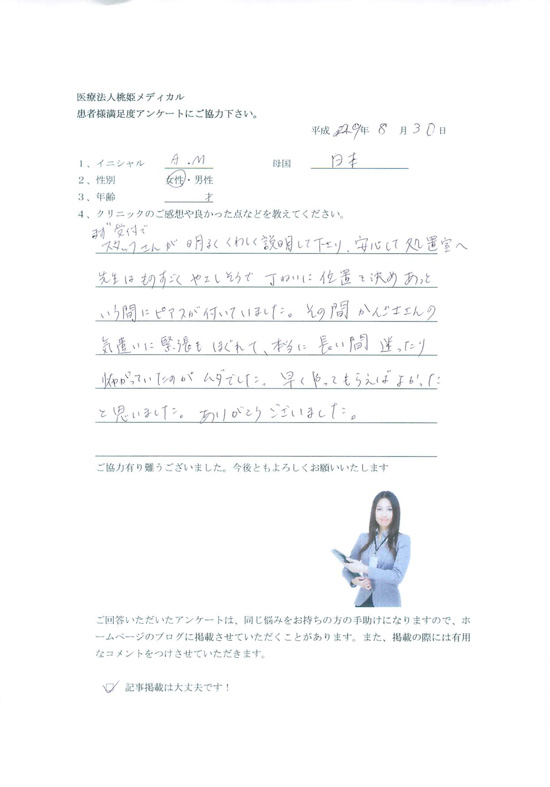 医療法人桃姫メディカル
患者様満足度アンケートにご協力下さい。
平成 29年 8 月 30日
1、イニシャル A.M 母国 日本
2、性別 女性・男性
3、年齢 才
4、クリニックのご感想や良かった点などを教えてください。
まず受付で
スタッフさんが明るくくわしく説明して下さり、安心して処置室へ
先生はものすごくやさしそうで丁ねいに位置を決めあっと
いう間にピアスが付いていました。その間かんごさんの
気遣いに緊張もほぐれて、本当に長い間迷ったり
怖がっていたのがムダでした。早くやってもらえばよかった
と思いました。ありがとうございました。
ご協力有り難うございました。今後ともよろしくお願いいたします
ご回答いただいたアンケートは、同じ悩みをお持ちの方の手助けになりますので、ホ
ームページのブログに掲載させていただくことがあります。また、掲載の際には有用
なコメントをつけさせていただきます。
記事掲載は大丈夫です！